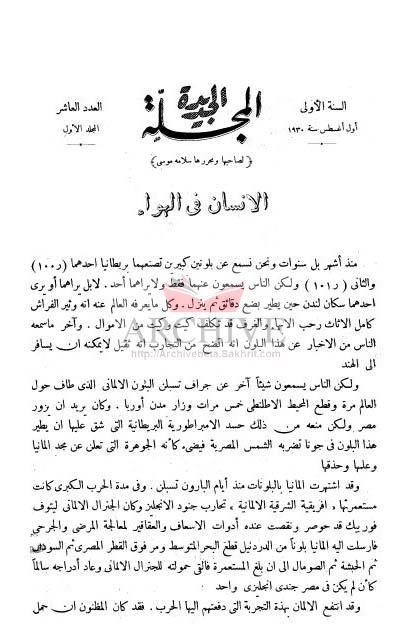 السنة الأولى
أول أغسطس سنة ١٩٣٠
المجلة الجديدة
العدد العاشر
المجلد الاول
(لصاحبها ومحررها سلامه موسى)
الانسان فى الهواء
منذ أشهر بل سنوات ونحن نسمع عن بلونين كبيرين تصنعهما بريطانيا احدهما (ر ١٠٠)
والثانى (ر ١٠١) ولكن الناس يسمعون عنهما فقط ولا يراهما أحد . لا بل يراهما أو يرى
احدهما سكان لندن حين يطير بضع دقائق ثم ينزل . وكل ما يعرفه العالم عنه انه وثير الفراش
كامل الاثاث رحب الابهاء والغرف قد تكلف كيت وكيت من الاموال . وآخر ما سمعه
الناس من الاخبار عن هذا البلون انه اتضح من التجارب أنه ثقيل لا يمكنه ان يسافر
الى الهند
ARCHIVE
http://Archivebeta.Sakhrit.com
ولكن الناس يسمعون شيئاً آخر عن جراف تسبلن البلون الالمانى الذى طاف حول
العالم مرة وقطع المحيط الاطلنطى خمس مرات وزار مدن أوربا . وكان يريد ان يزور
مصر ولكن منعه من ذلك حسد الامبراطورية البريطانية التى شق عليها ان يطير
هذا البلون فى جونا تضربه الشمس المصرية فيضىء كأنه الجوهرة التى تعلن عن مجد المانيا
وعلمها وحذقها
وقد اشتهرت المانيا بالبلونات منذ أيام البارون تسبلن . وفى مدة الحرب الكبرى كانت
مستعمرتها « افريقية الشرقية الالمانية » تحارب جنود الانجليز وكان الجنرال الالمانى ليتوف
فوربيك قد حوصر ونقصت عنده أدوات الاسعاف والعقاقير لمعالجة المرضى والجرحى
فارسلت اليه المانيا بلوناً من الدردنيل قطع البحر المتوسط ومر فوق القطر المصرى ثم السودان
ثم الحبشة ثم الصومال الى ان بلغ المستعمرة فالقى حمولته للجنرال الالمانى وعاد أدراجه سالماً
كأن لم يكن فى مصر جندى انجليزى واحد
وقد انتفع الالمان بهذه التجربة التى دفعتهم اليها الحرب . فقد كان المظنون ان حمل